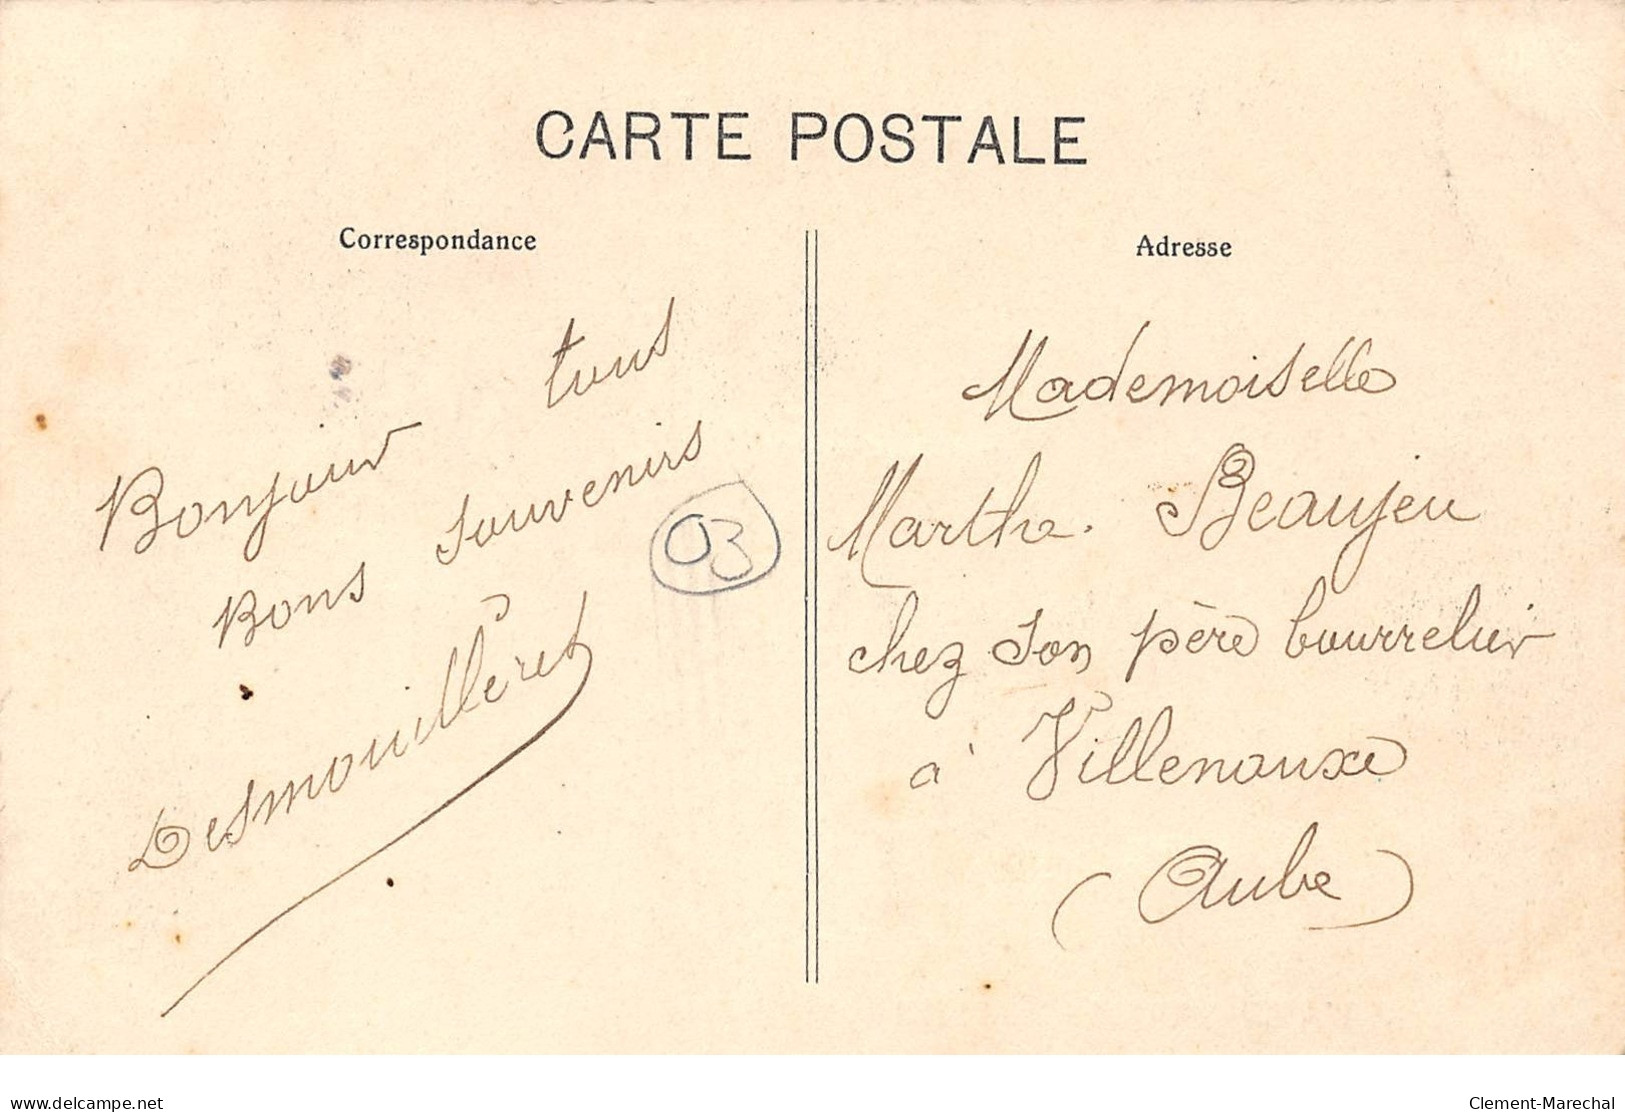 CARTE POSTALE
Correspondance
Bonjour tous
Bons souvenirs
Desmouilleret
03
Adresse
Mademoiselle
Marthe. Beaujeu
chez son père bourrelier
à Villenauxe
(Aube)
www.delcampe.net
Clement-Marechal